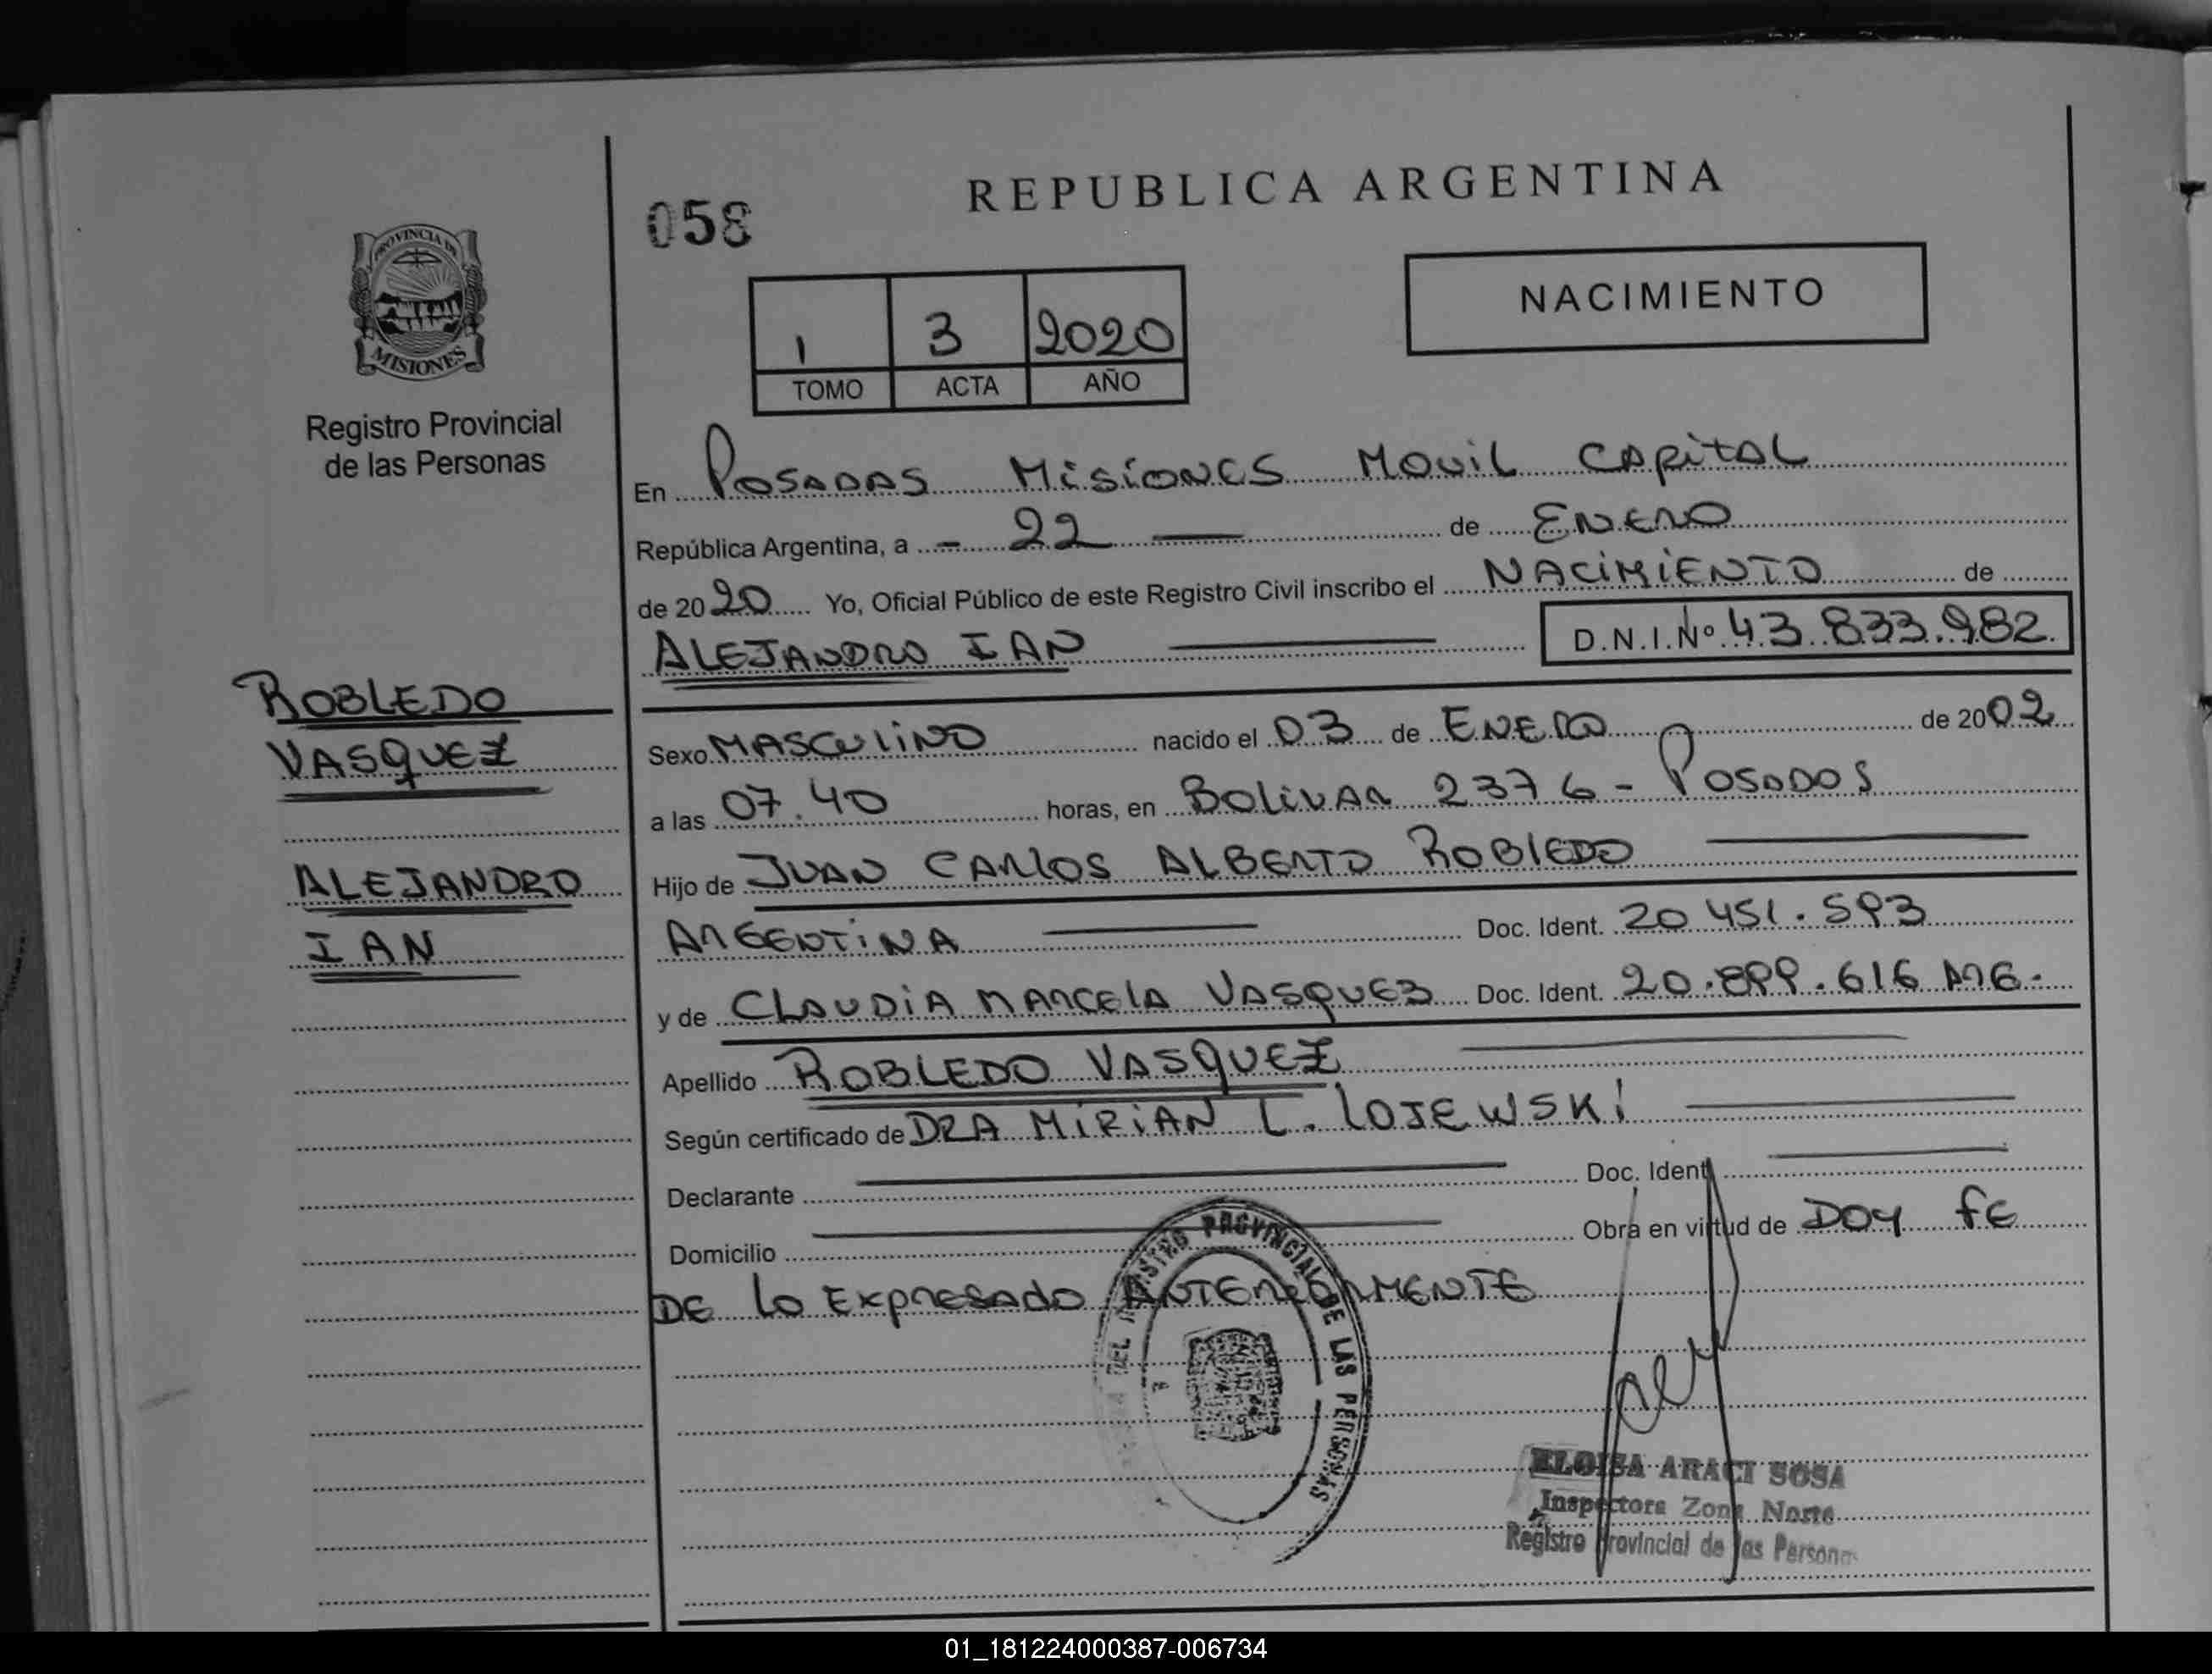 REPUBLICA ARGENTINA
058
NACIMIENTO
PROVINCIA DE
MISIONES
Registro Provincial
de las Personas
1 3 2020
TOMO ACTA AÑO
En Posadas Misiones Movil Capital
República Argentina, a - 22 — de Enero
de 2020 Yo, Oficial Público de este Registro Civil inscribo el NACIMIENTO de
ALEJANDRO IAN — D.N.I.Nº 43.833.982.
ROBLEDO
VASQUEZ
ALEJANDRO
IAN
Sexo MASCULINO nacido el 03 de ENERO de 2002
a las 07.40 horas, en Bolivar 2376 - Posadas
Hijo de JUAN CARLOS ALBERTO ROBLEDO —
ARGENTINA — Doc. Ident. 20 451.593
y de CLAUDIA MARCELA VASQUEZ Doc. Ident. 20.899.616 ARG.
Apellido ROBLEDO VASQUEZ —
Según certificado de DRA MIRIAN L. LOJEWSKI —
Declarante — Doc. Ident. —
Domicilio — Obra en virtud de DOY FE
DE LO EXPRESADO ANTERIORMENTE
DEL REGISTRO PROVINCIAL DE LAS PERSONAS
ELOISA ARACI SOSA
Inspectora Zona Norte
Registro Provincial de las Personas
01_181224000387-006734